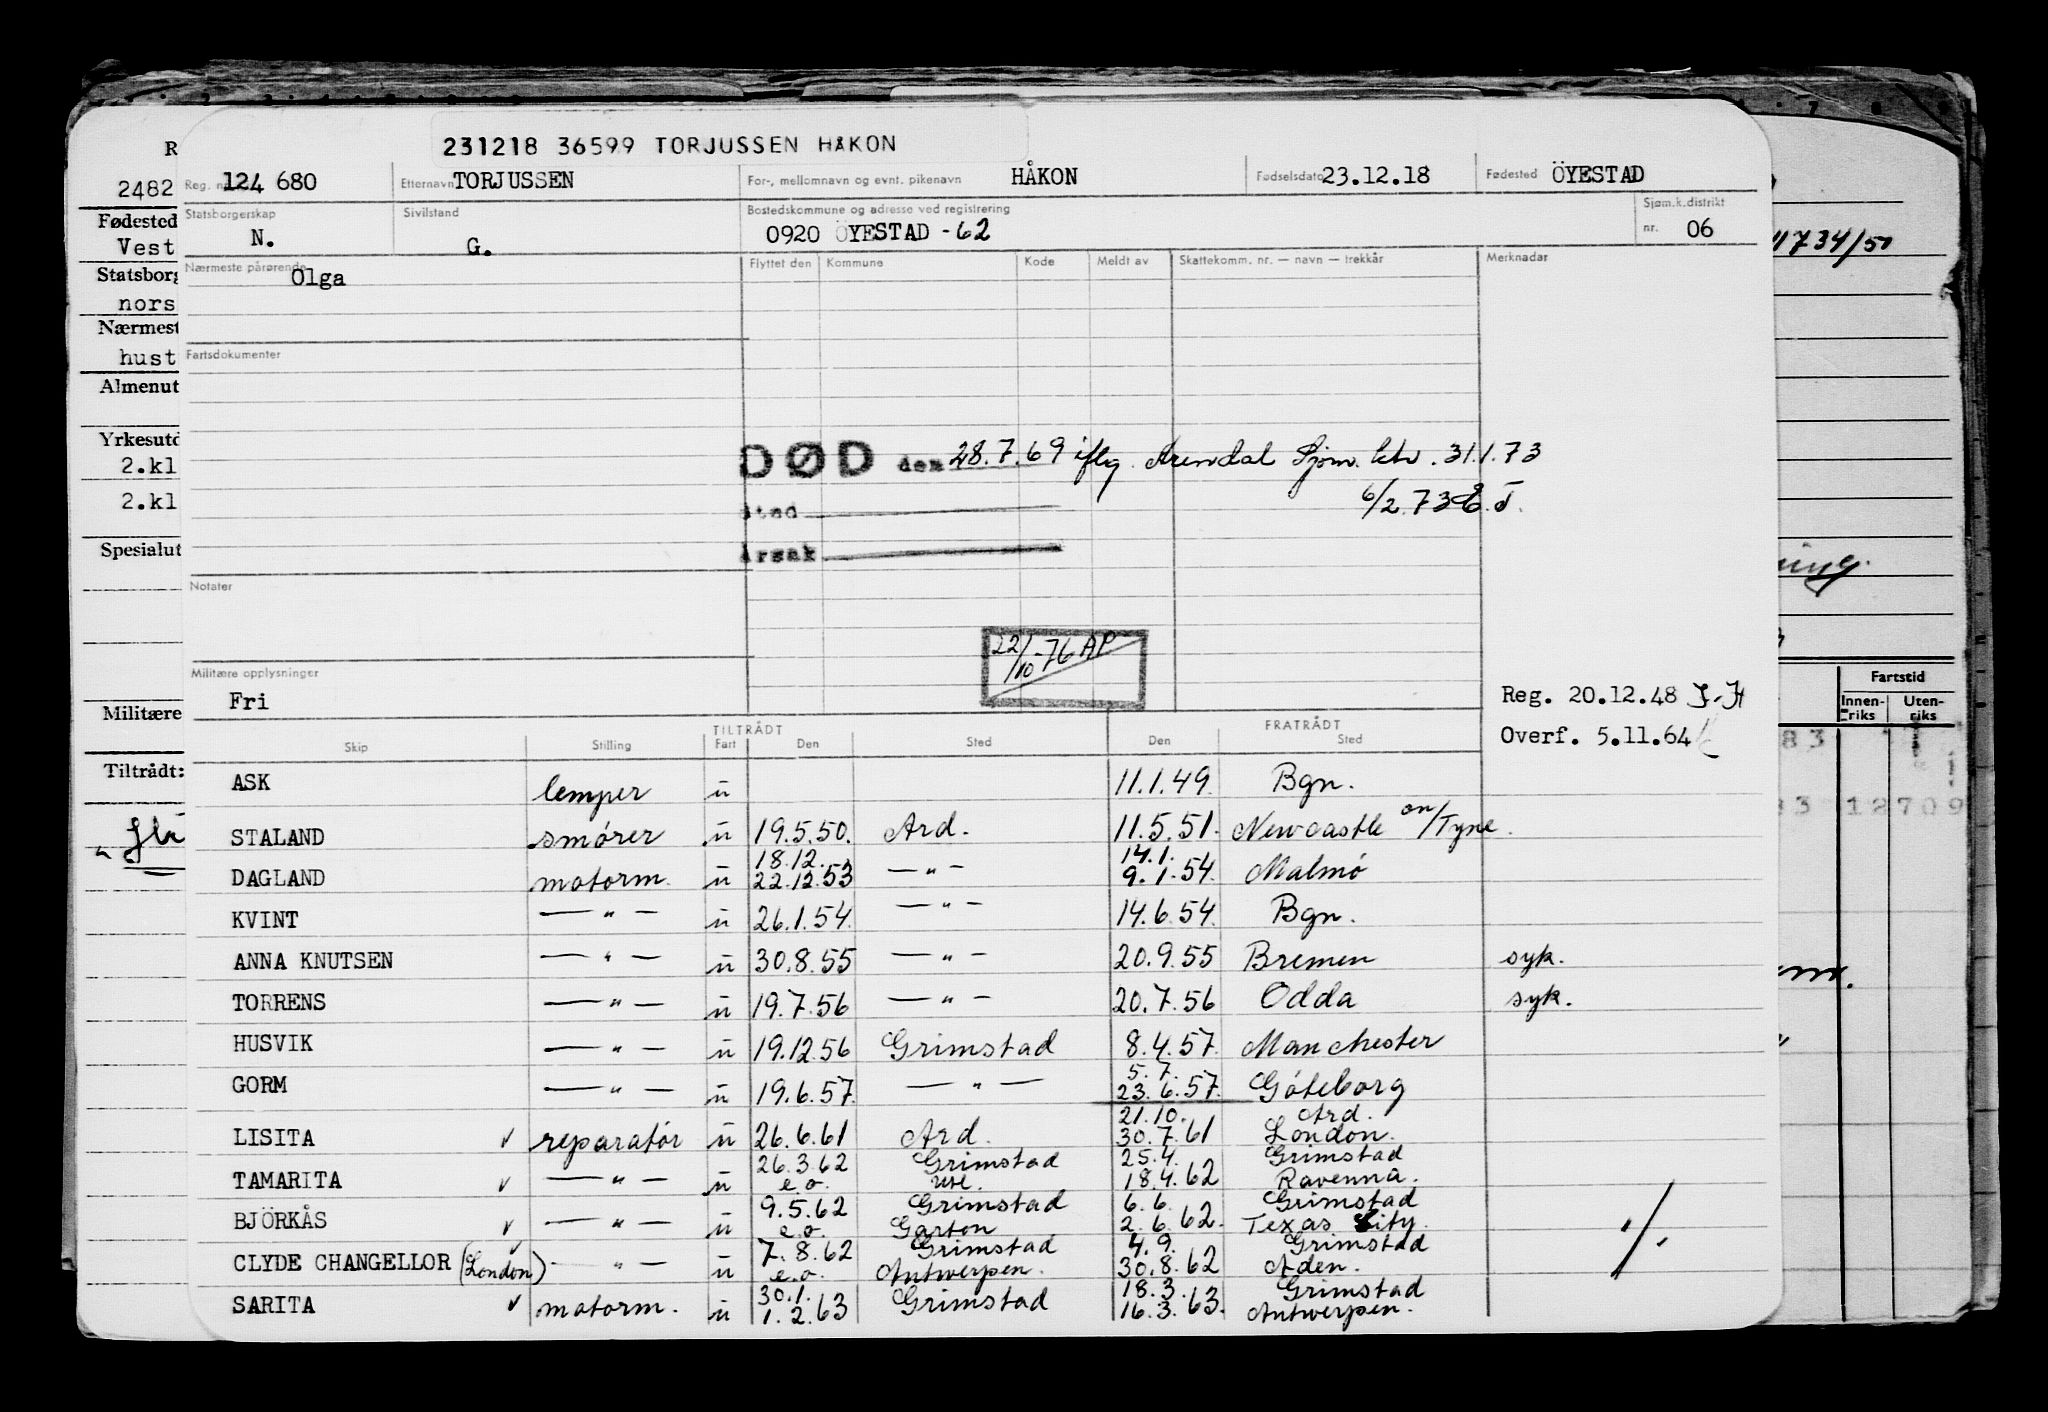 231218 36599 TORJUSSEN HÅKON
R
2482
Reg. nr. 124 680 Etternavn TORJUSSEN For-, mellomnavn og evnt. pikenavn HÅKON Fødselsdato 23.12.18 Fødested ÖYESTAD
Fødested
Vest
Statsborgerskap N. Sivilstand G. Bostedskommune og adresse ved registrering 0920 ÖYESTAD - 62 Sjøm.k.distrikt nr. 06
11734/50
Statsborg
nors
Nærmeste pårørende Olga Flyttet den Kommune Kode Meldt av Skattekomm. nr. — navn — trekkår Merknader
Nærmest
hust
Fartsdokumenter
Almenut
Yrkesutd
2.kl
2.kl
DØD den 28.7.69 iflg. Arendal Sjøm. ktr. 31.1.73
6/2.73 E.T.
Sted
Årsak
Spesialut
Notater
22/10-76 AP
Militære opplysninger
Fri
Militære
Reg. 20.12.48 I-H
Overf. 5.11.64
Fartstid
Innenriks Utenriks
83
83 12709
Tiltrådt:
TILTRÅDT FRATRÅDT
Skip Stilling Fart Den Sted Den Sted
ASK lemper u 11.1.49 Bgn.
STALAND smører u 19.5.50. Ard. 11.5.51. Newcastle on/Tyne.
18.12. 14.1.
DAGLAND motorm. u 22.12.53 — " — 9.1.54. Malmø
KVINT — " — u 26.1.54. — " — 14.6.54. Bgn.
ANNA KNUTSEN — " — u 30.8.55 — " — 20.9.55 Bremen syk.
TORRENS — " — u 19.7.56 — " — 20.7.56 Odda syk.
HUSVIK — " — u 19.12.56 Grimstad 8.4.57. Manchester
5.7.
GORM — " — u 19.6.57. — " — 23.6.57. Göteborg
21.10. Ard.
LISITA ✓ reparatør u 26.6.61 Ard. 30.7.61 London.
26.3.62 Grimstad 25.4. Grimstad
TAMARITA ✓ — " — u e.o. ute. 18.4.62 Ravenna.
9.5.62 Grimstad 6.6. Grimstad
BJÖRKÅS ✓ — " — u e.o. Garton 2.6.62. Texas City.
7.8.62 Grimstad 4.9. Grimstad
CLYDE CHANGELLOR (London) ✓ — " — u e.o. Antwerpen. 30.8.62 Aden.
30.1. 18.3. Grimstad
SARITA ✓ motorm. u 1.2.63 Grimstad 16.3.63. Antwerpen.